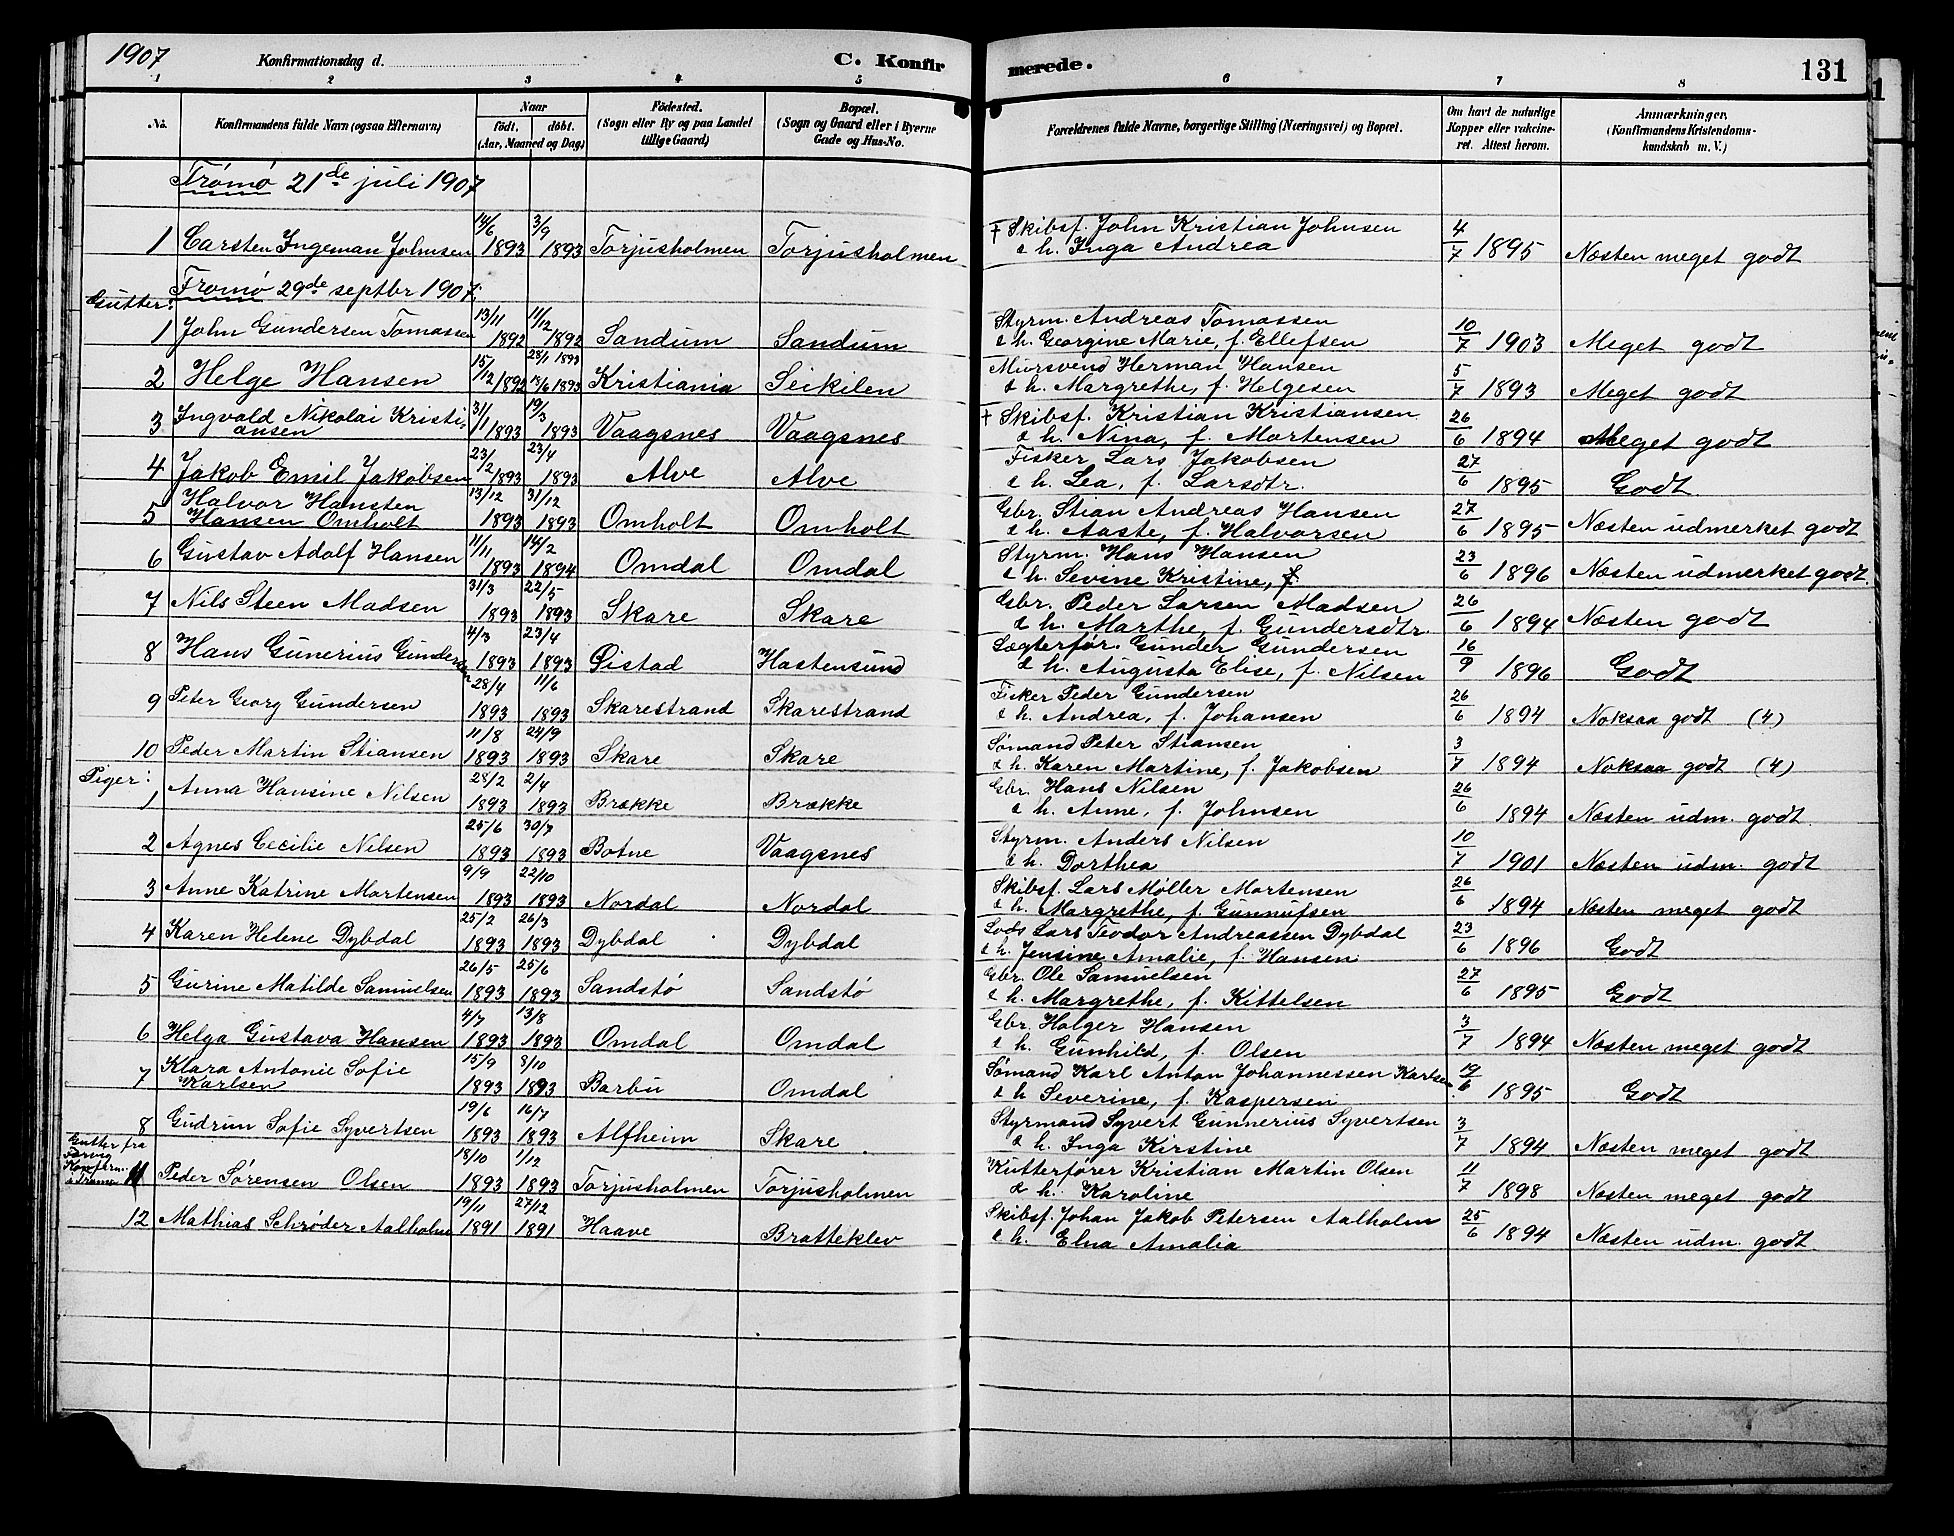 1907 Konfirmationsdag d. C. Konfir merede. 131
1 2 3 4 5 6 7 8
No. Konfirmandens fulde Navn (ogsaa Efternavn) Naar født. døbt. (Aar, Maaned og Dag) Fødested. (Sogn eller By og paa Landet tillige Gaard) Bopæl. (Sogn og Gaard eller i Byerne Gade og Hus-No. Forældrenes fulde Navne, borgerlige Stilling (Næringsvei) og Bopæl. Om havt de naturlige Kopper eller vakcineret. Attest herom. Anmærkninger, (Konfirmandens Kristendomskundskab m. V.)
Tromø 21de juli 1907
1 Carsten Ingeman Johnsen 14/6 1893 3/9 1893 Torjusholmen Torjusholmen † Skibsf. John Kristian Johnsen & h. Inga Andrea 4/7 1895 Næsten meget godt
Tromø 29de septbr 1907.
Gutter:
1 John Gundersen Tomassen 13/11 1892 11/12 1892 Sandum Sandum Styrm. Andreas Tomassen & h. Georgine Marie, f. Ellefsen 10/7 1903 Meget godt
2 Helge Hansen 15/12 1892 28/1 1893 13/6 1893 Kristiania Seikilen Murs­vend Herman Hansen & h. Margrethe, f. Helgesen 5/7 1893 Meget godt
3 Ingvald Nikolai Kristiansen 31/1 1893 19/3 1893 Vaagsnes Vaagsnes † Skibsf. Kristian Kristiansen & h. Nina, f. Mortensen 26/6 1894 Meget godt
4 Jakob Emil Jakobsen 23/2 1893 23/4 1893 Alve Alve Fisker Lars Jakobsen & h. Lea, f. Larsdtr. 27/6 1895 Godt.
5 Halvor Hansten Hansen Omholt 13/12 1893 31/12 1893 Omholt Omholt Gbr. Stian Andreas Hansen & h. Aaste, f. Halvorsen 27/6 1895 Næsten udmerket godt
6 Gustav Adolf Hansen 11/11 1893 14/2 1894 Omdal Omdal Styrm. Hans Hansen & h. Sevine Kristine, f. 23/6 1896 Næsten udmerket godt.
7 Nils Steen Madsen 31/3 1893 22/5 1893 Skare Skare Gbr. Peder Larsen Madsen & h. Marthe, f. Gundersdtr. 26/6 1894 Næsten godt
8 Hans Gunerius Gundersen 4/3 1893 23/4 1893 Øistad Hastensund Lægterfør. Gunder Gundersen & h. Augusta Elise, f. Nilsen 16/9 1896 Godt
9 Peter Georg Gundersen 28/4 1893 11/6 1893 Skarestrand Skarestrand Fisker Peder Gundersen & h. Andrea, f. Johansen 26/6 1894 Noksaa godt (4)
10 Peder Martin Stiansen 11/8 1893 24/9 1893 Skare Skare Sømand Peter Stiansen & h. Karen Martine, f. Jakobsen 3/7 1894 Noksaa godt (4)
Piger:
1 Anna Hansine Nilsen 28/2 1893 2/4 1893 Brække Brække Gbr. Hans Nilsen & h. Anne, f. Johnsen 26/6 1894 Næsten udm. godt.
2 Agnes Cecilie Nilsen 25/6 1893 30/7 1893 Botne Vaagsnes Styrm. Anders Nilsen & h. Dorthea 10/7 1901 Næsten udm. godt
3 Anne Katrine Mortensen 9/9 1893 22/10 1893 Nordal Nordal Skibsf. Lars Møller Mortensen & h. Margrethe, f. Gunnufsen 26/6 1894 Næsten meget godt
4 Karen Helene Dybdal 25/2 1893 26/3 1893 Dybdal Dybdal Lods Lars Teodor Andreassen Dybdal & h. Jensine Amalie, f. Hansen 23/6 1896 Godt
5 Gurine Matilde Samuelsen 26/5 1893 25/6 1893 Sandstø Sandstø Gbr. Ole Samuelsen & h. Margrethe, f. Kittelsen 27/6 1895 Godt
6 Helga Gustava Hansen 4/7 1893 13/8 1893 Omdal Omdal Gbr. Holger Hansen & h. Gunhild, f. Olsen 3/7 1894 Næsten meget godt
7 Klara Antonie Sofie Karlsen 15/9 1893 8/10 1893 Barbu Omdal Sømand Karl Anton Johannessen Karlsen & h. Severine, f. Kaspersen 19/6 1895 Godt
8 Gudrun Sofie Syvertsen 19/6 1893 16/7 1893 Alfheim Skare Styrmand Syvert Gunnerius Syvertsen & h. Inga Kirstine 3/7 1894 Næsten meget godt
Gutter fra Færvig Konfirm. i Tromø
11 Peder Sørensen Olsen 18/10 1893 1/12 1893 Torjusholmen Torjusholmen Kutterfører Kristian Martin Olsen & h. Karoline 11/7 1898 Næsten meget godt
12 Mathias Schrøder Aalholm 19/11 1891 27/12 1891 Haave Bratteklev Skibsf. Johan Jakob Petersen Aalholm & h. Elna Amalia 25/6 1894 Næsten udm. godt.